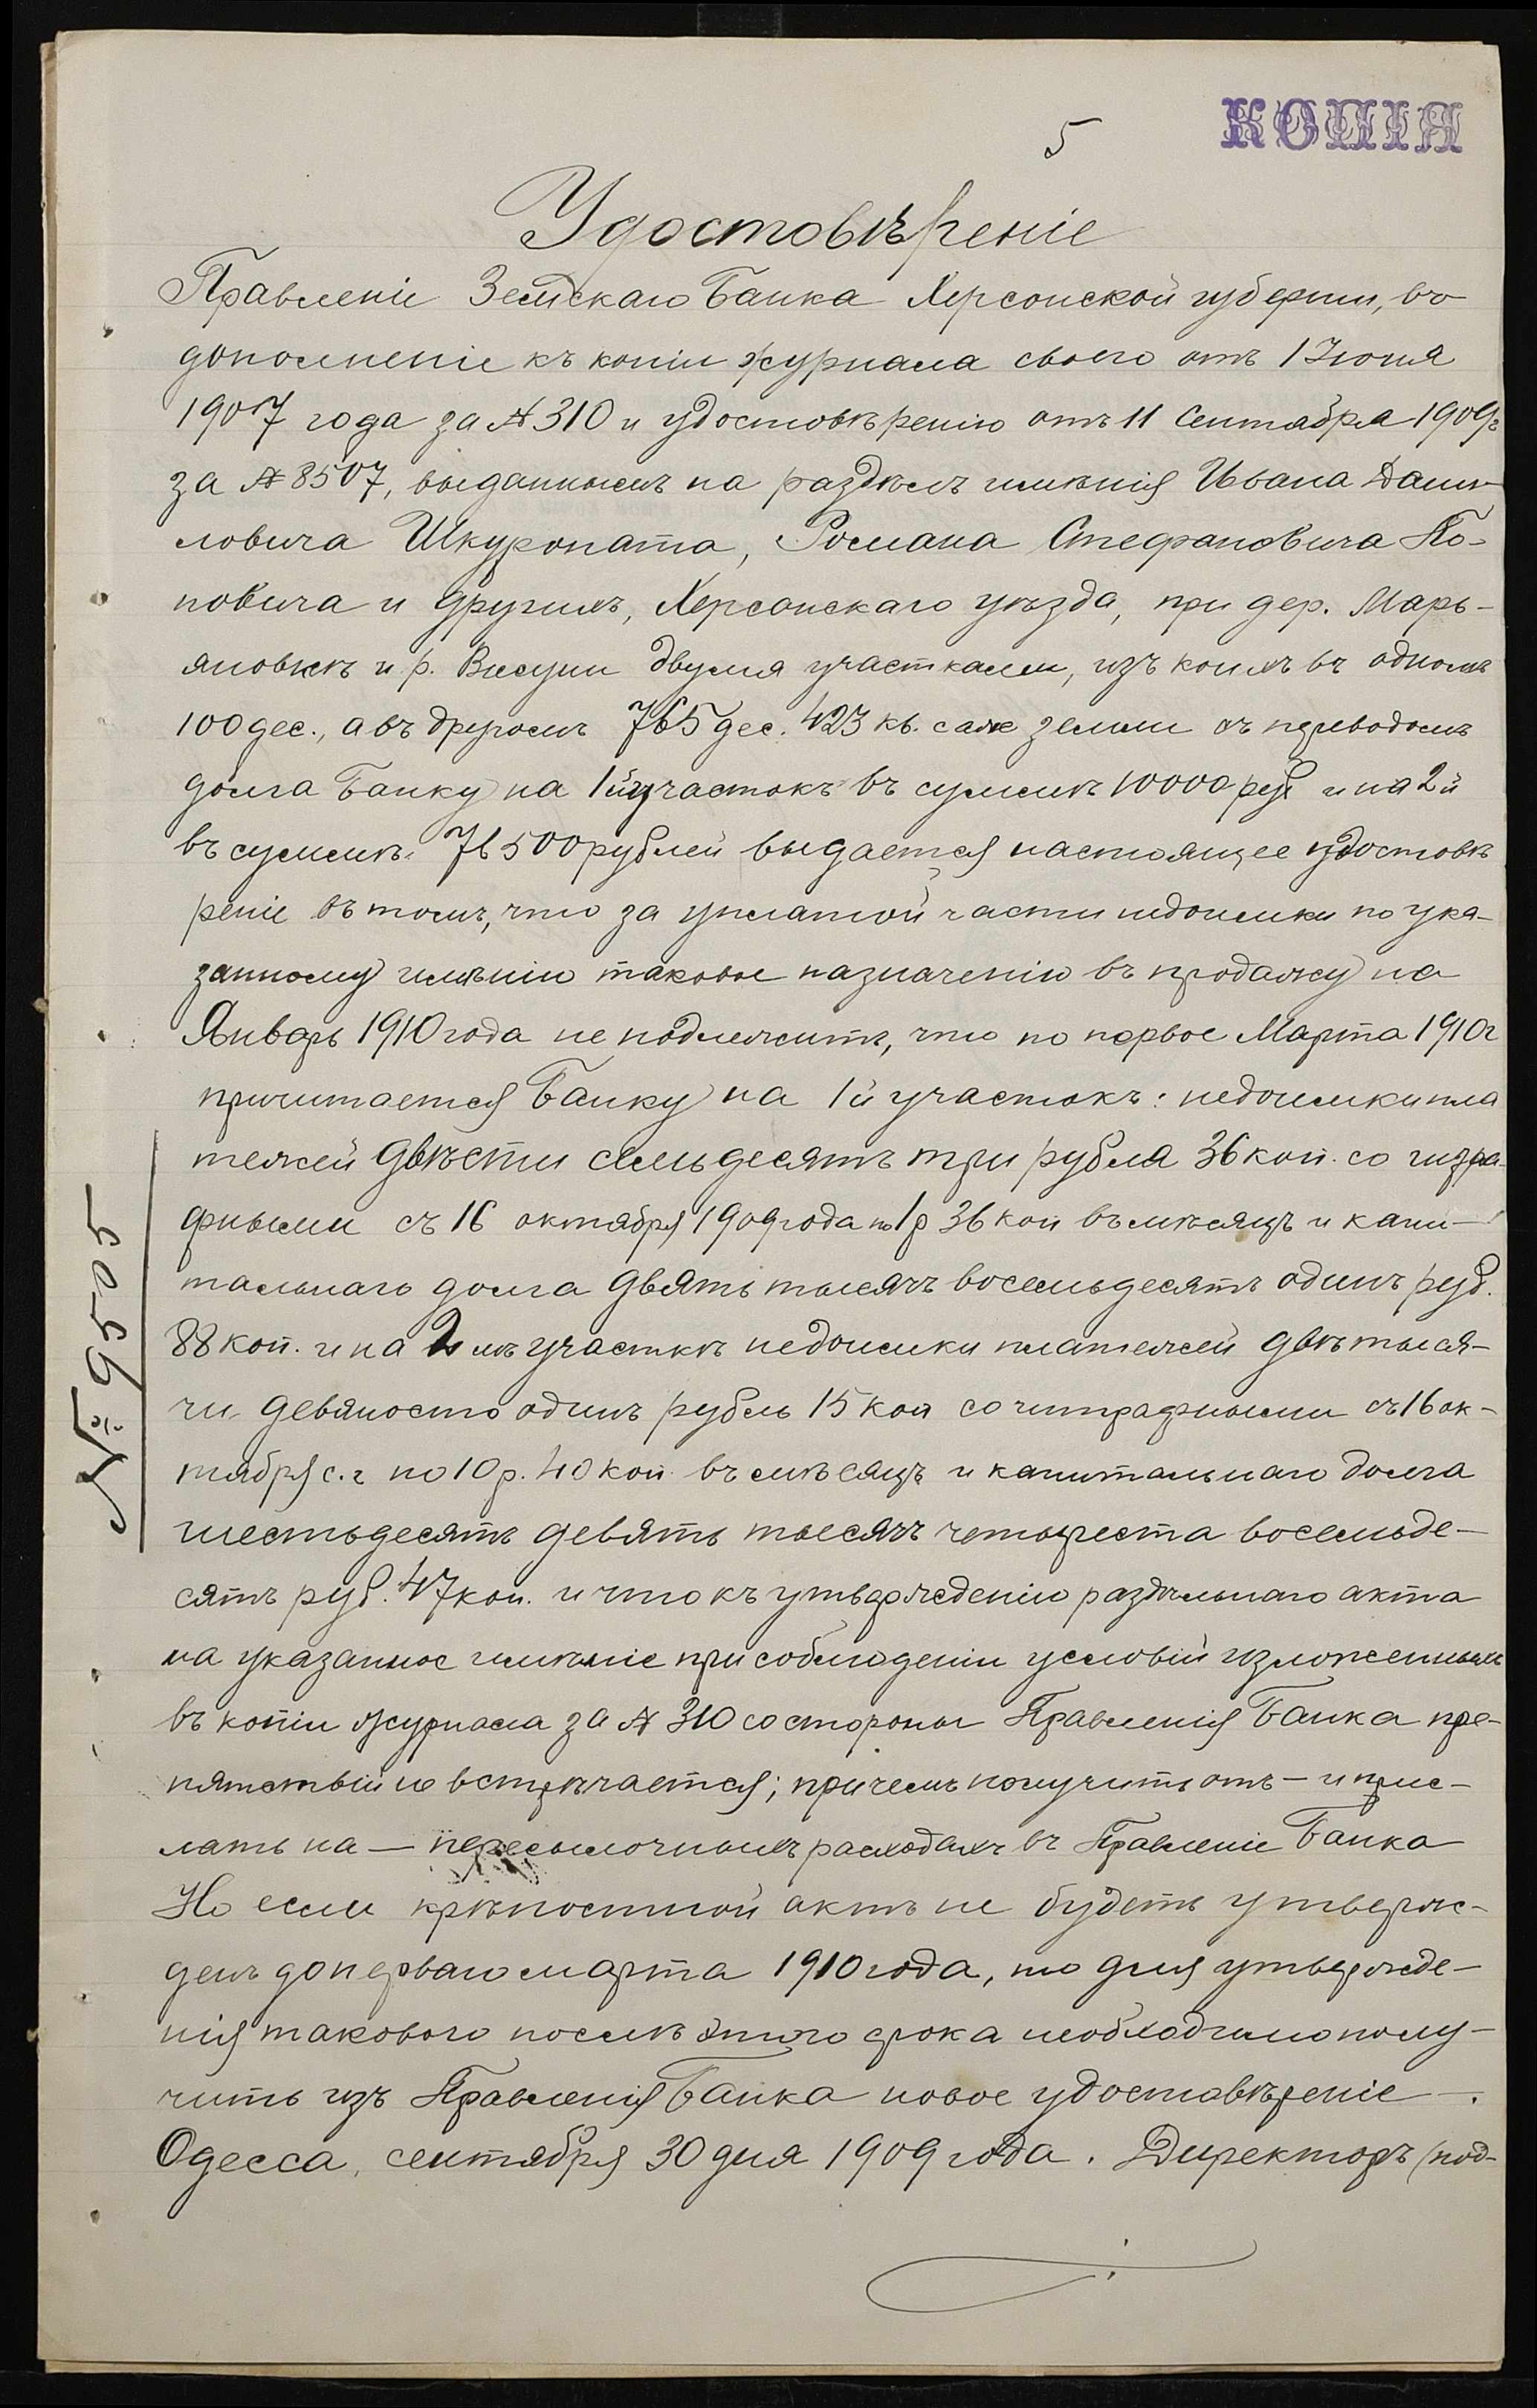 5
КОПІЯ
Удостовѣреніе
Правленіе Земскаго Банка Херсонской губерніи, въ
дополненіе къ копіи журнала своего отъ 1 Іюня
1907 года за № 310 и удостовѣренію отъ 11 Сентября 1909 г
за № 8507, выданнымъ на раздѣлъ имѣнія Ивана Дани-
ловича Шкуропата, Романа Стефановича По-
повича и другихъ, Херсонскаго уѣзда, при дер. Марь-
яновкѣ и р. Висуни двумя участками, изъ коихъ въ одномъ
100 дес., а въ другомъ 765 дес. 423 кв. саж земли съ переводомъ
долга Банку на 1й участокъ въ суммѣ 10000 руб и на 2й
въ суммѣ 76500 рублей выдается настоящее удостовѣ
реніе въ томъ, что за уплатой части недоимки по ука-
занному имѣнію таковое назначенію въ продажу на
Январь 1910 года не подлежитъ, что по первое Марта 1910 г
причитается Банку на 1й участокъ: недоимки пла
тежей двѣсти семьдесятъ три рубля 36 коп. со штра-
фными съ 16 октября 1909 года по 1 р 36 коп въ мѣсяцъ и капи-
тальнаго долга двять тысячъ восемьдесятъ одинъ руб.
88 коп. и на 2 мъ участкѣ недоимки платежей двѣ тыся-
чи девяносто одинъ рубль 15 коп со штрафными съ 16 ок-
тября с. г по 10 р. 40 коп въ мѣсяцъ и капитальнаго долга
шестьдесятъ девять тысячъ четыреста восемьде-
сятъ руб. 47 коп. и что къ утвержденію раздѣльнаго акта
на указанное имѣніе при соблюденіи условій изложенныхъ
въ копіи журнала за № 310 со стороны Правленія Банка пре-
пятствій не встрѣчается; причемъ получить отъ — и прис-
лать на — пересылочныхъ расходахъ въ Правленіе Банка
Но если крѣпостной актъ не будетъ утверж-
денъ до перваго марта 1910 года, то для утвержде-
нія таковаго послѣ этого срока необходимо полу-
чить изъ Правленія Банка новое удостовѣреніе.
Одесса, сентября 30 дня 1909 года. Директоръ (под-
№ 9505